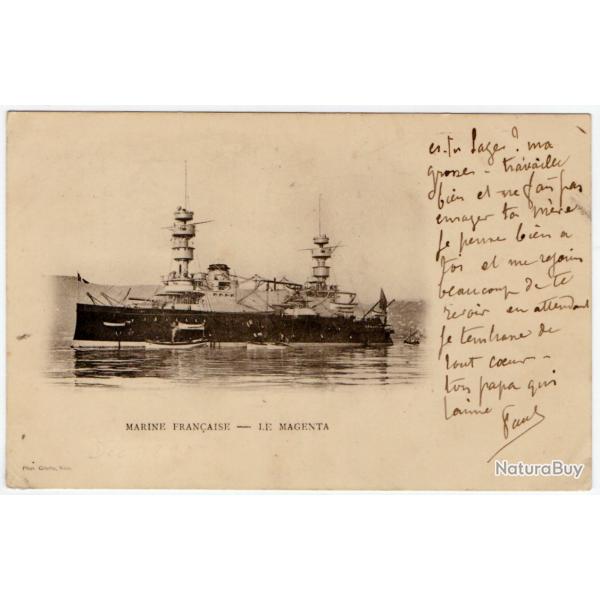 es-tu sage? ma
grosse - travailles
bien et ne fais pas
enrager ta mère
je pense bien a
toi et me rejouis
beaucoup de te
revoir en attendant
je t'embrasse de
tout coeur -
ton papa qui
t'aime
Paul
MARINE FRANÇAISE — LE MAGENTA
Phot. Giletta, Nice.
NaturaBuy